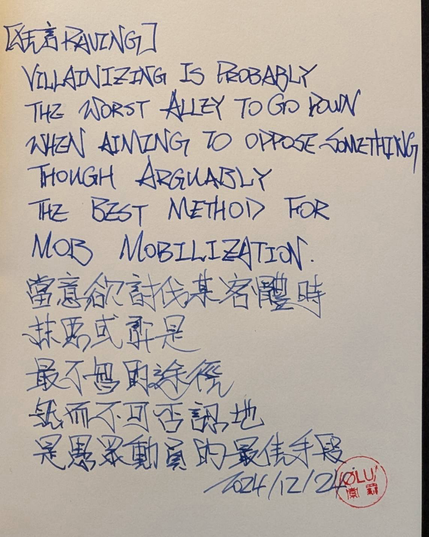 [狂言 RAVING]
VILLAINIZING IS PROBABLY
THE WORST ALLEY TO GO DOWN
WHEN AIMING TO OPPOSE SOMETHING
THOUGH ARGUABLY
THE BEST METHOD FOR
MOB MOBILIZATION.
當意欲討伐某客體時
抹惡或許是
最不智的途徑
然而不可否認地
是愚眾動員的最佳手段
2024/12/24
ØLU